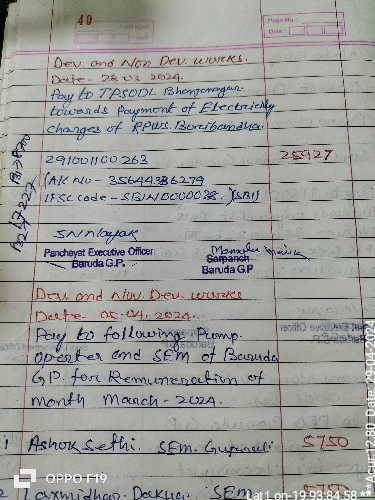 40
Page No.:
Date:
Dev. and Non Dev. works.
Date - 28.03.2024.
Pay to TPSODL Bhanjanagar
towards Payment of Electricity
charges of RPWS. Boribandha.
291001100263 25927
(A/c No - 35644386279
IFSC code - SBIN0000038.)(SBI)
SN Nayak
Panchayat Executive Officer
Baruda G.P.
Sarpanch
Baruda G.P
Dev. and Non. Dev. works
Date - 05.04.2024.
Pay to following Pump.
operater and SEM of Baruda
G.P. for Remuneration of
month March - 2024.
1 Ashok Sethi. SEM. 5750
2 Laxmidhar Dakua. SEM 5750
OPPO F19
Lat|on-19.93:84.58
Acu:12.80 Date 29-04-2024